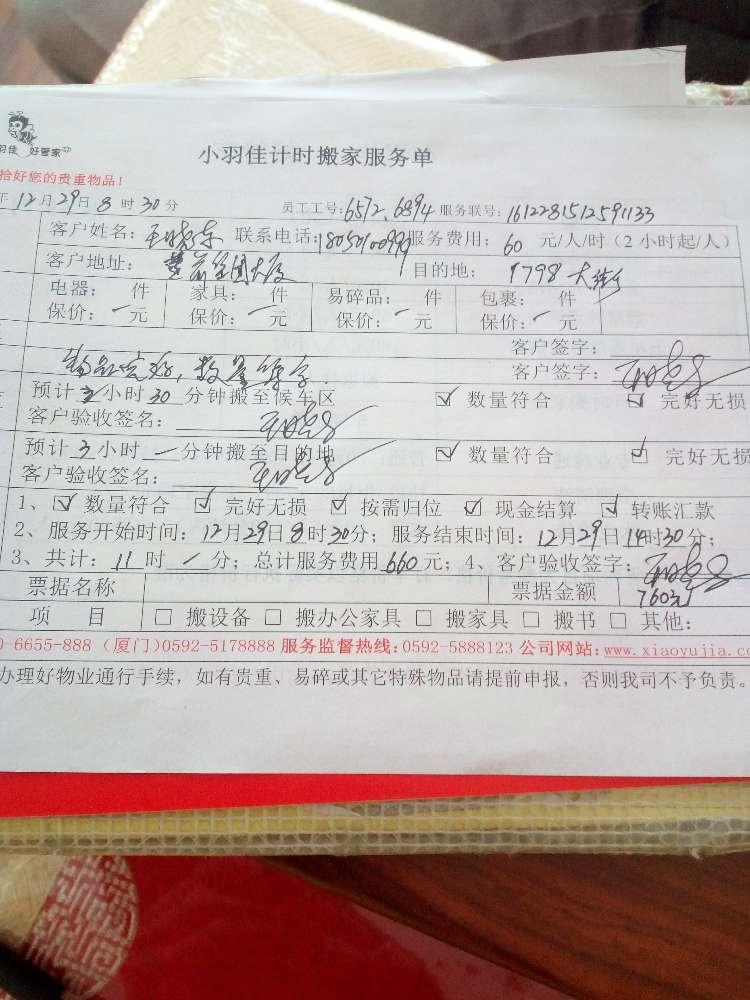 羽佳 好管家
小羽佳计时搬家服务单
拾好您的贵重物品！
年12月29日8时30分 员工工号：6572、6894 服务联号：1612281512591133
客户姓名： 联系电话：18050100999 服务费用：60 元/人/时（2小时起/人）
客户地址： 目的地：1798大街
电器： 件 家具： 件 易碎品： 件 包裹： 件
保价：一元 保价：一元 保价：一元 保价：一元
客户签字：
物品完好，数量符合. 客户签字：
预计2小时30分钟搬至候车区 ☑ 数量符合 ☑ 完好无损
客户验收签名：
预计3小时一分钟搬至目的地 ☑ 数量符合 ☑ 完好无损
客户验收签名：
1、☑ 数量符合 ☑ 完好无损 ☑ 按需归位 ☑ 现金结算 ☑ 转账汇款
2、服务开始时间：12月29日8时30分；服务结束时间：12月29日14时30分；
3、共计：11时一分；总计服务费用660元；4、客户验收签字：
票据名称 票据金额 760元
项 目 □ 搬设备 □ 搬办公家具 □ 搬家具 □ 搬书 □ 其他：
0-6655-888（厦门）0592-5178888 服务监督热线：0592-5888123 公司网站：www.xiaoyujia.co
办理好物业通行手续，如有贵重、易碎或其它特殊物品请提前申报，否则我司不予负责。